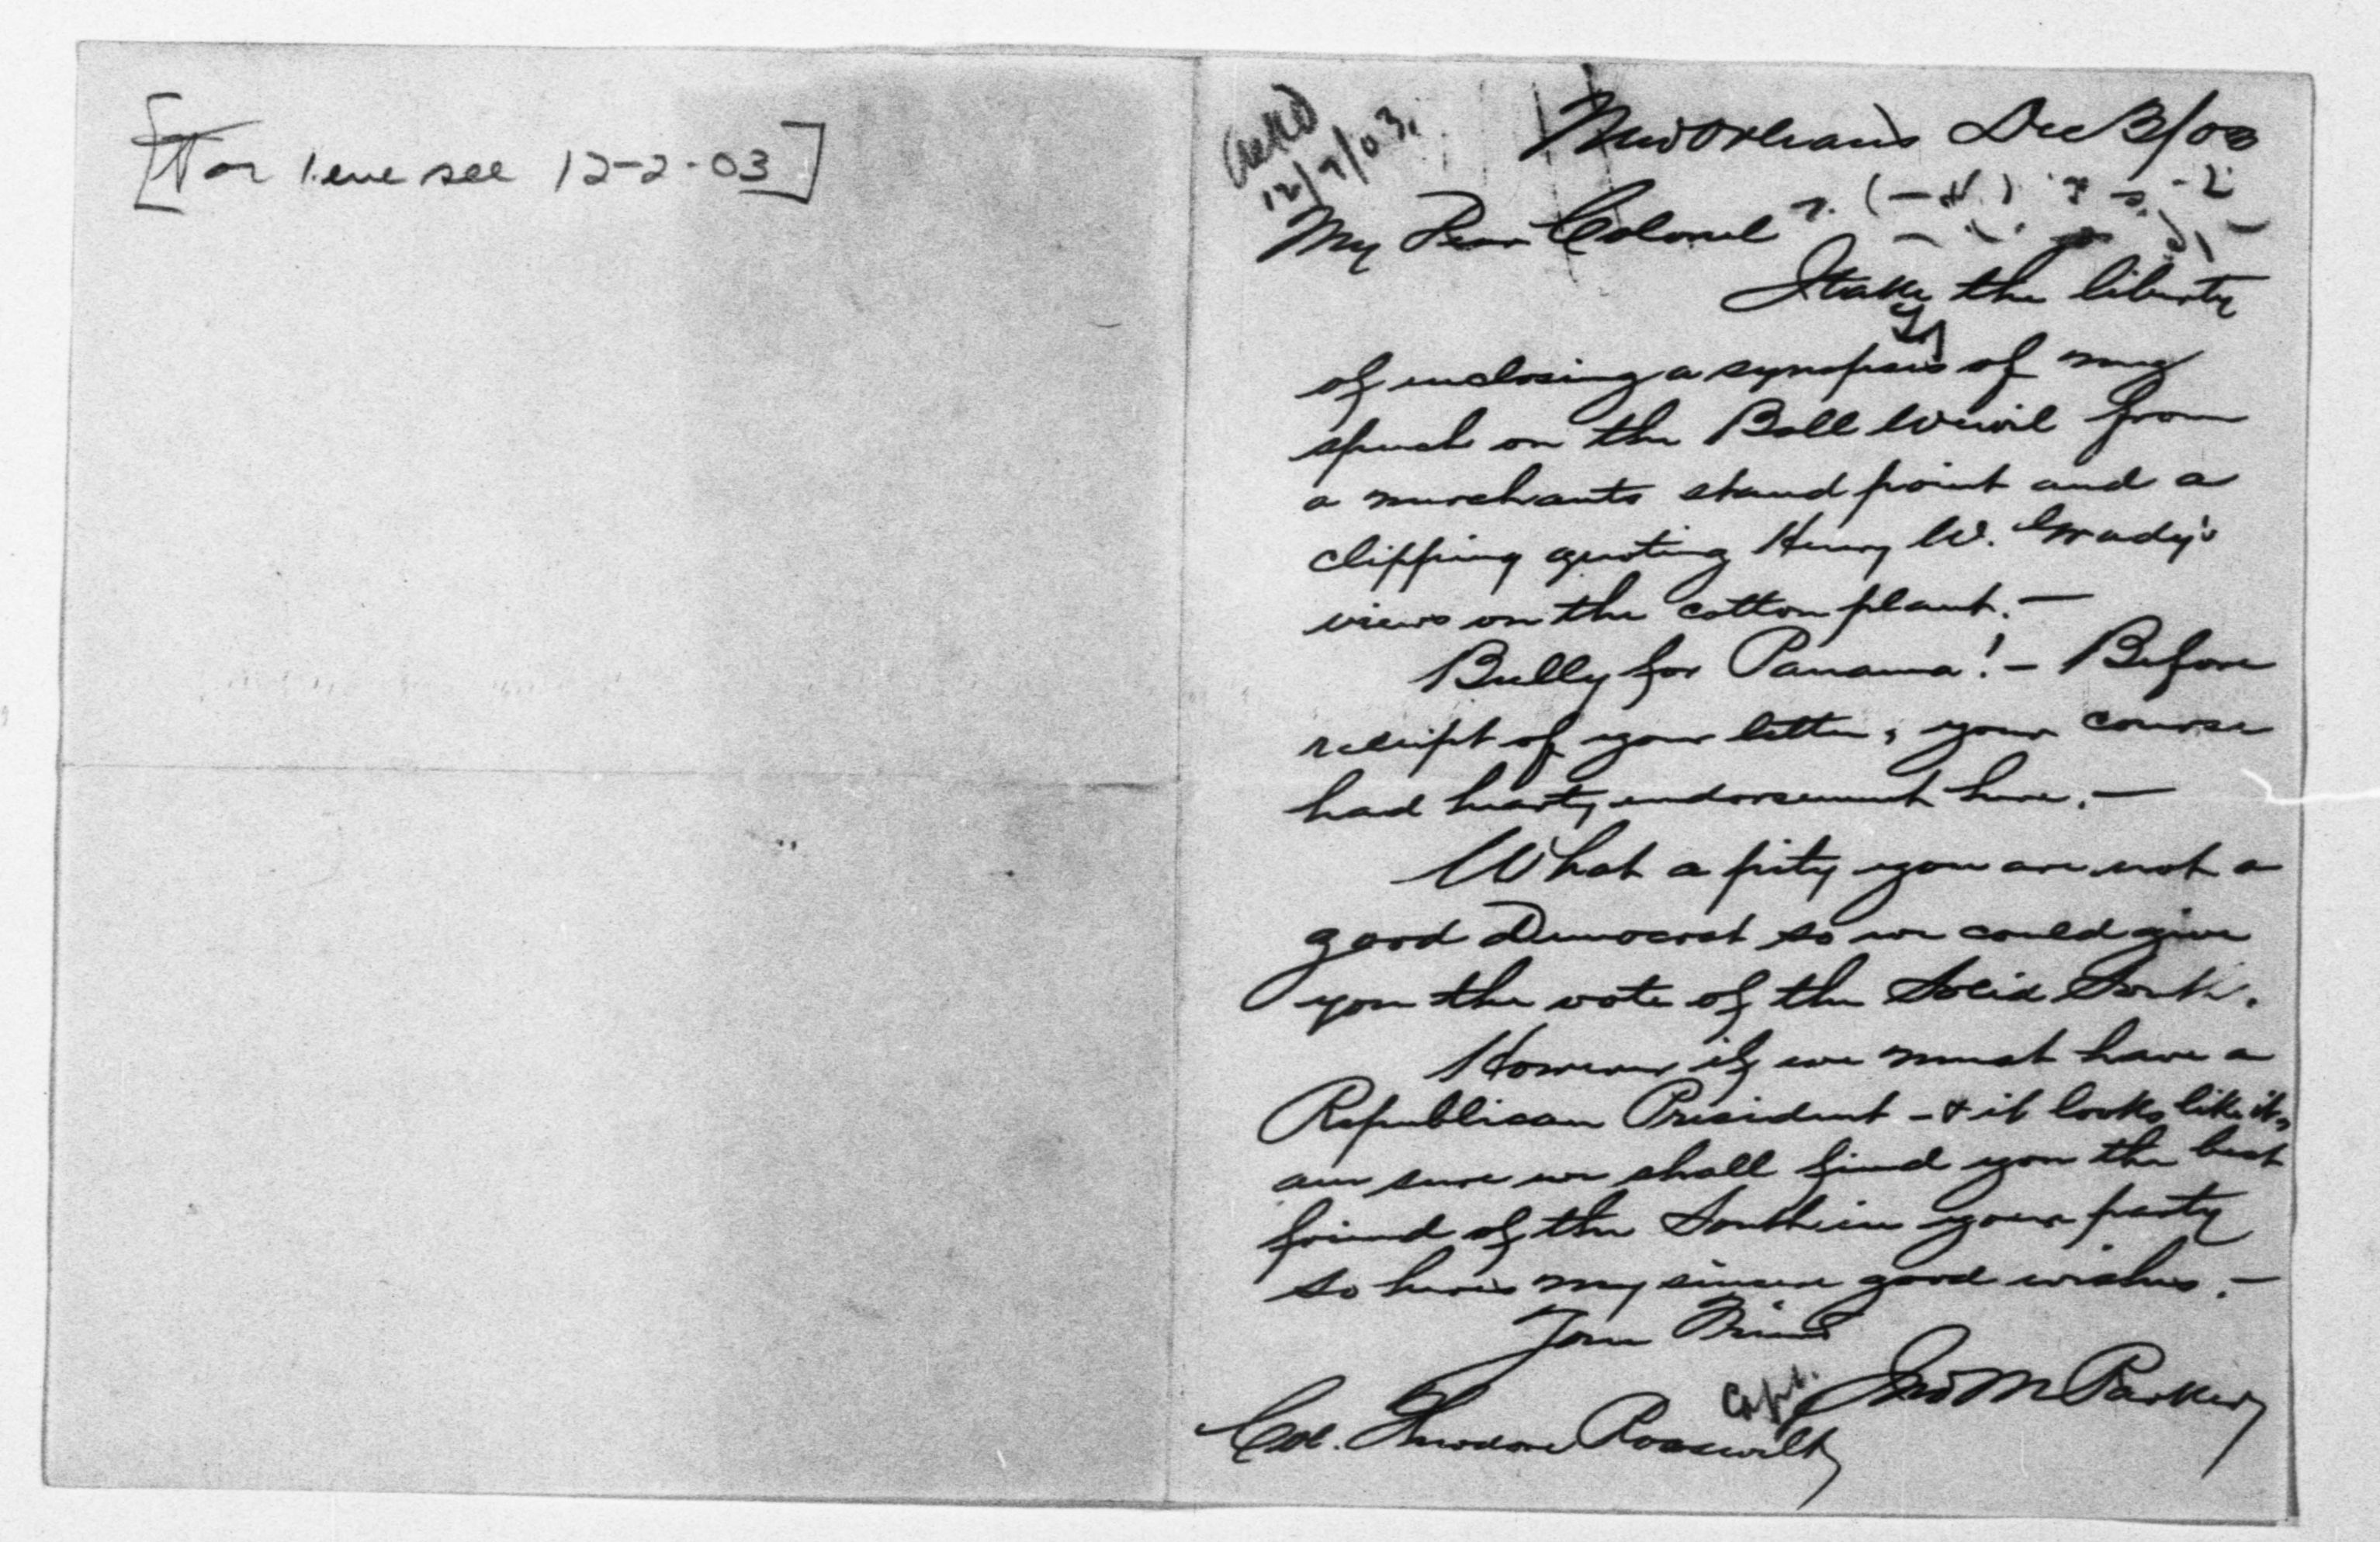 [For 1 enc see 12-2-03]
Ackd
12/7/03.
New Orleans Dec 3/03
My Dear Colonel
I take the liberty
of enclosing a synopsis of my
speech on the Boll Weevil from
a merchants stand point and a
clipping quoting Henry W. Grady's
views on the cotton plant. —
Bully for Panama! — Before
receipt of your letter, your course
had hearty endorsement here. —
What a pity you are not a
good Democrat so we could give
you the vote of the Solid South.
However if we must have a
Republican President - & it looks like it,
am sure we shall find you the best
friend of the South in your party
so here's my sincere good wishes. —
Your Friend
Capt. Jno M Parker
Col. Theodore Roosevelt